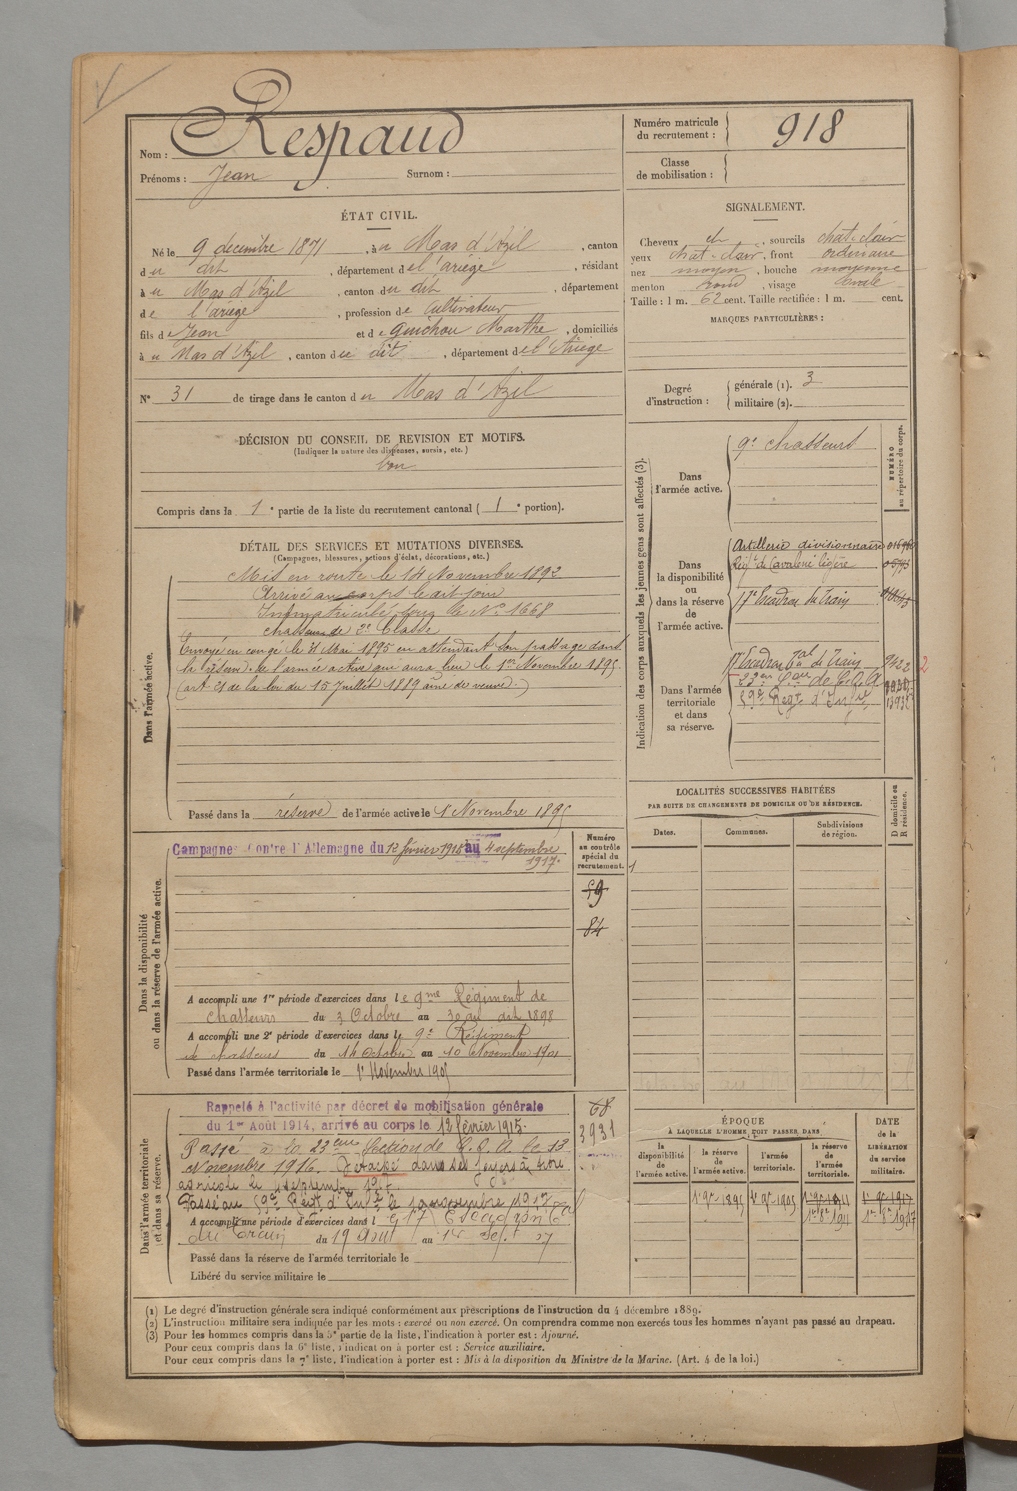 Nom : Respaud
Prénoms : Jean Surnom :
Numéro matricule du recrutement : 918
Classe de mobilisation :
ÉTAT CIVIL.
Né le 9 décembre 1871, à u Mas d'Azil, canton
d u dit, département d e l'ariège, résidant
à u Mas d'Azil, canton d u dit, département
d e l'ariège, profession d e Cultivateur
fils d e Jean et d e Guichou Marthe, domiciliés
à u Mas d'Azil, canton d u dit, département d e l'Ariège
N° 31 de tirage dans le canton d u Mas d'Azil
SIGNALEMENT.
Cheveux ch, sourcils chat-clair
yeux chat-clair, front ordinaire
nez moyen, bouche moyenne
menton rond, visage ovale
Taille : 1 m. 62 cent. Taille rectifiée : 1 m. cent.
MARQUES PARTICULIÈRES :
Degré d'instruction : générale (1). 3
militaire (2).
DÉCISION DU CONSEIL DE REVISION ET MOTIFS.
(Indiquer la nature des dispenses, sursis, etc.)
bon
Compris dans la 1e partie de la liste du recrutement cantonal (1e portion).
DÉTAIL DES SERVICES ET MUTATIONS DIVERSES.
(Campagnes, blessures, actions d'éclat, décorations, etc.)
Dans l'armée active.
Mis en route le 14 Novembre 1892
Arrivé au corps le dit jour
Immatriculé sous le N° 1668
chasseur de 2e Classe
Envoyé en congé le 31 Mai 1895 en attendant son passage dans
la réserve de l'armée active qui aura lieu le 1er Novembre 1895.
(art. 21 de la loi du 15 Juillet 1889 aîné de veuve.)
Passé dans la réserve de l'armée active le 1 Novembre 1895
Indication des corps auxquels les jeunes gens sont affectés (3).
NUMÉRO au répertoire du corps.
Dans l'armée active.
9e chasseurs
Dans la disponibilité ou dans la réserve de l'armée active.
Artillerie divisionnaire
Régt de Cavalerie légère
17e Escadron du Train
Dans l'armée territoriale et dans sa réserve.
17 Escadron tal du Train 9422 2
23e Son de C.O.A
59e Regt d'Infie 13932
LOCALITÉS SUCCESSIVES HABITÉES
PAR SUITE DE CHANGEMENTS DE DOMICILE OU DE RÉSIDENCE.
Dates. Communes. Subdivisions de région. D domicile ou R résidence.
Dans la disponibilité ou dans la réserve de l'armée active.
Numéro au contrôle spécial du recrutement.
Campagne contre l'Allemagne du 12 février 1915 au 4 septembre
1917.
59
84
A accompli une 1re période d'exercices dans l e 9me Régiment de
chasseurs du 3 Octobre au 30 du dit 1898
A accompli une 2e période d'exercices dans le 9e Régiment
de chasseurs du 14 Octobre au 10 Novembre 1901
Passé dans l'armée territoriale le 1er Novembre 1905
Dans l'armée territoriale et dans sa réserve.
Rappelé à l'activité par décret de mobilisation générale
du 1er Août 1914, arrivé au corps le 12 février 1915.
68
3931
Passé à la 23eme Section de C.O.A le 13
Novembre 1916. Détaché dans ses foyers à titre
agricole le 4 septembre 1917
Passé au 59e Régt d'Infie le 10 novembre 1917
A accompli une période d'exercices dans l e 17 Escadron tal
du Train du 19 Aout au 1er Sept 07
Passé dans la réserve de l'armée territoriale le
Libéré du service militaire le
ÉPOQUE
À LAQUELLE L'HOMME DOIT PASSER DANS
la disponibilité de l'armée active. la réserve de l'armée active. l'armée territoriale. la réserve de l'armée territoriale.
DATE de la LIBÉRATION du service militaire.
1er 9bre 1895 1er 9bre 1905 1er 9bre 1911 1er 9bre 1917
1er 8bre 1911 1er 8bre 1917
(1) Le degré d'instruction générale sera indiqué conformément aux prescriptions de l'instruction du 4 décembre 1889.
(2) L'instruction militaire sera indiquée par les mots : exercé ou non exercé. On comprendra comme non exercés tous les hommes n'ayant pas passé au drapeau.
(3) Pour les hommes compris dans la 5e partie de la liste, l'indication à porter est : Ajourné.
Pour ceux compris dans la 6e liste, l'indication à porter est : Service auxiliaire.
Pour ceux compris dans la 7e liste, l'indication à porter est : Mis à la disposition du Ministre de la Marine. (Art. 4 de la loi.)